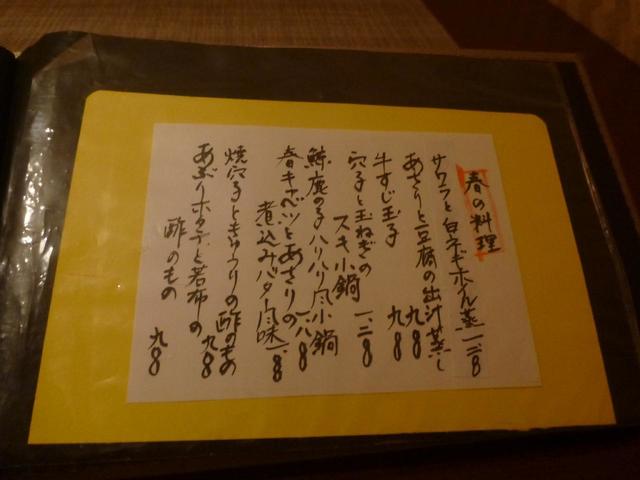 春の料理
サワラと白ネギホイル蒸し 一、二八
あさりと豆腐の出汁蒸し 九八
牛すじ玉子 九八
穴子と玉ねぎの
スキ小鍋 一、二八
鯨鹿の子ハリハリ風小鍋 一、八八
春キャベツとあさりの
煮込みバター風味 一、八
焼穴子ときゅうりの酢のもの 九八
あぶりホタテと若布の
酢のもの 九八